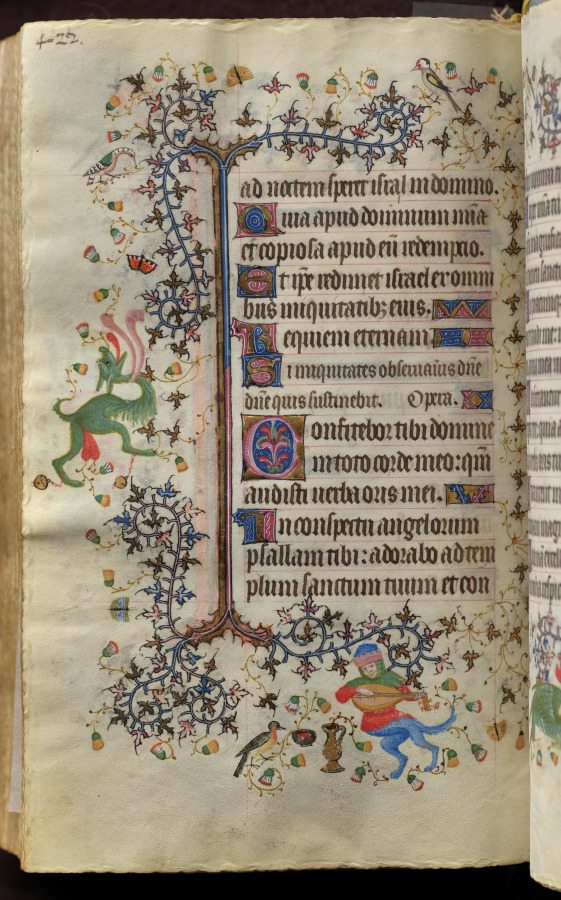 +22.
ad noctem speret isral in domino.
Quia apud dominum mia
et copiosa apud eū redempcio.
Et ipe redimet israel ex omni
bus iniquitatibꝫ eius.
Requiem eternam.
Si iniquitates obseruauis dn̄e
dn̄e quis sustinebit. Opera.
Confitebor tibi domine
in toto corde meo: qm̄
audisti uerba oris mei.
In conspectu angelorum
psallam tibi: adorabo ad tem
plum sanctum tuum et con